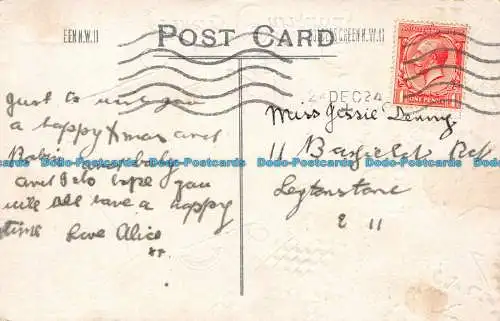 EEN N.W.11
POST CARD
GREEN N.W.11
POSTAGE
ONE PENNY
24 DEC 24
Just to wish you
a happy Xmas and
and I do hope you
will all have a happy
time Love Alice
xx
Miss Jessie Denny
11
Leytonstone
E 11
Dodo-Postcards Dodo-Postcards Dodo-Postcards Dodo-Postcards